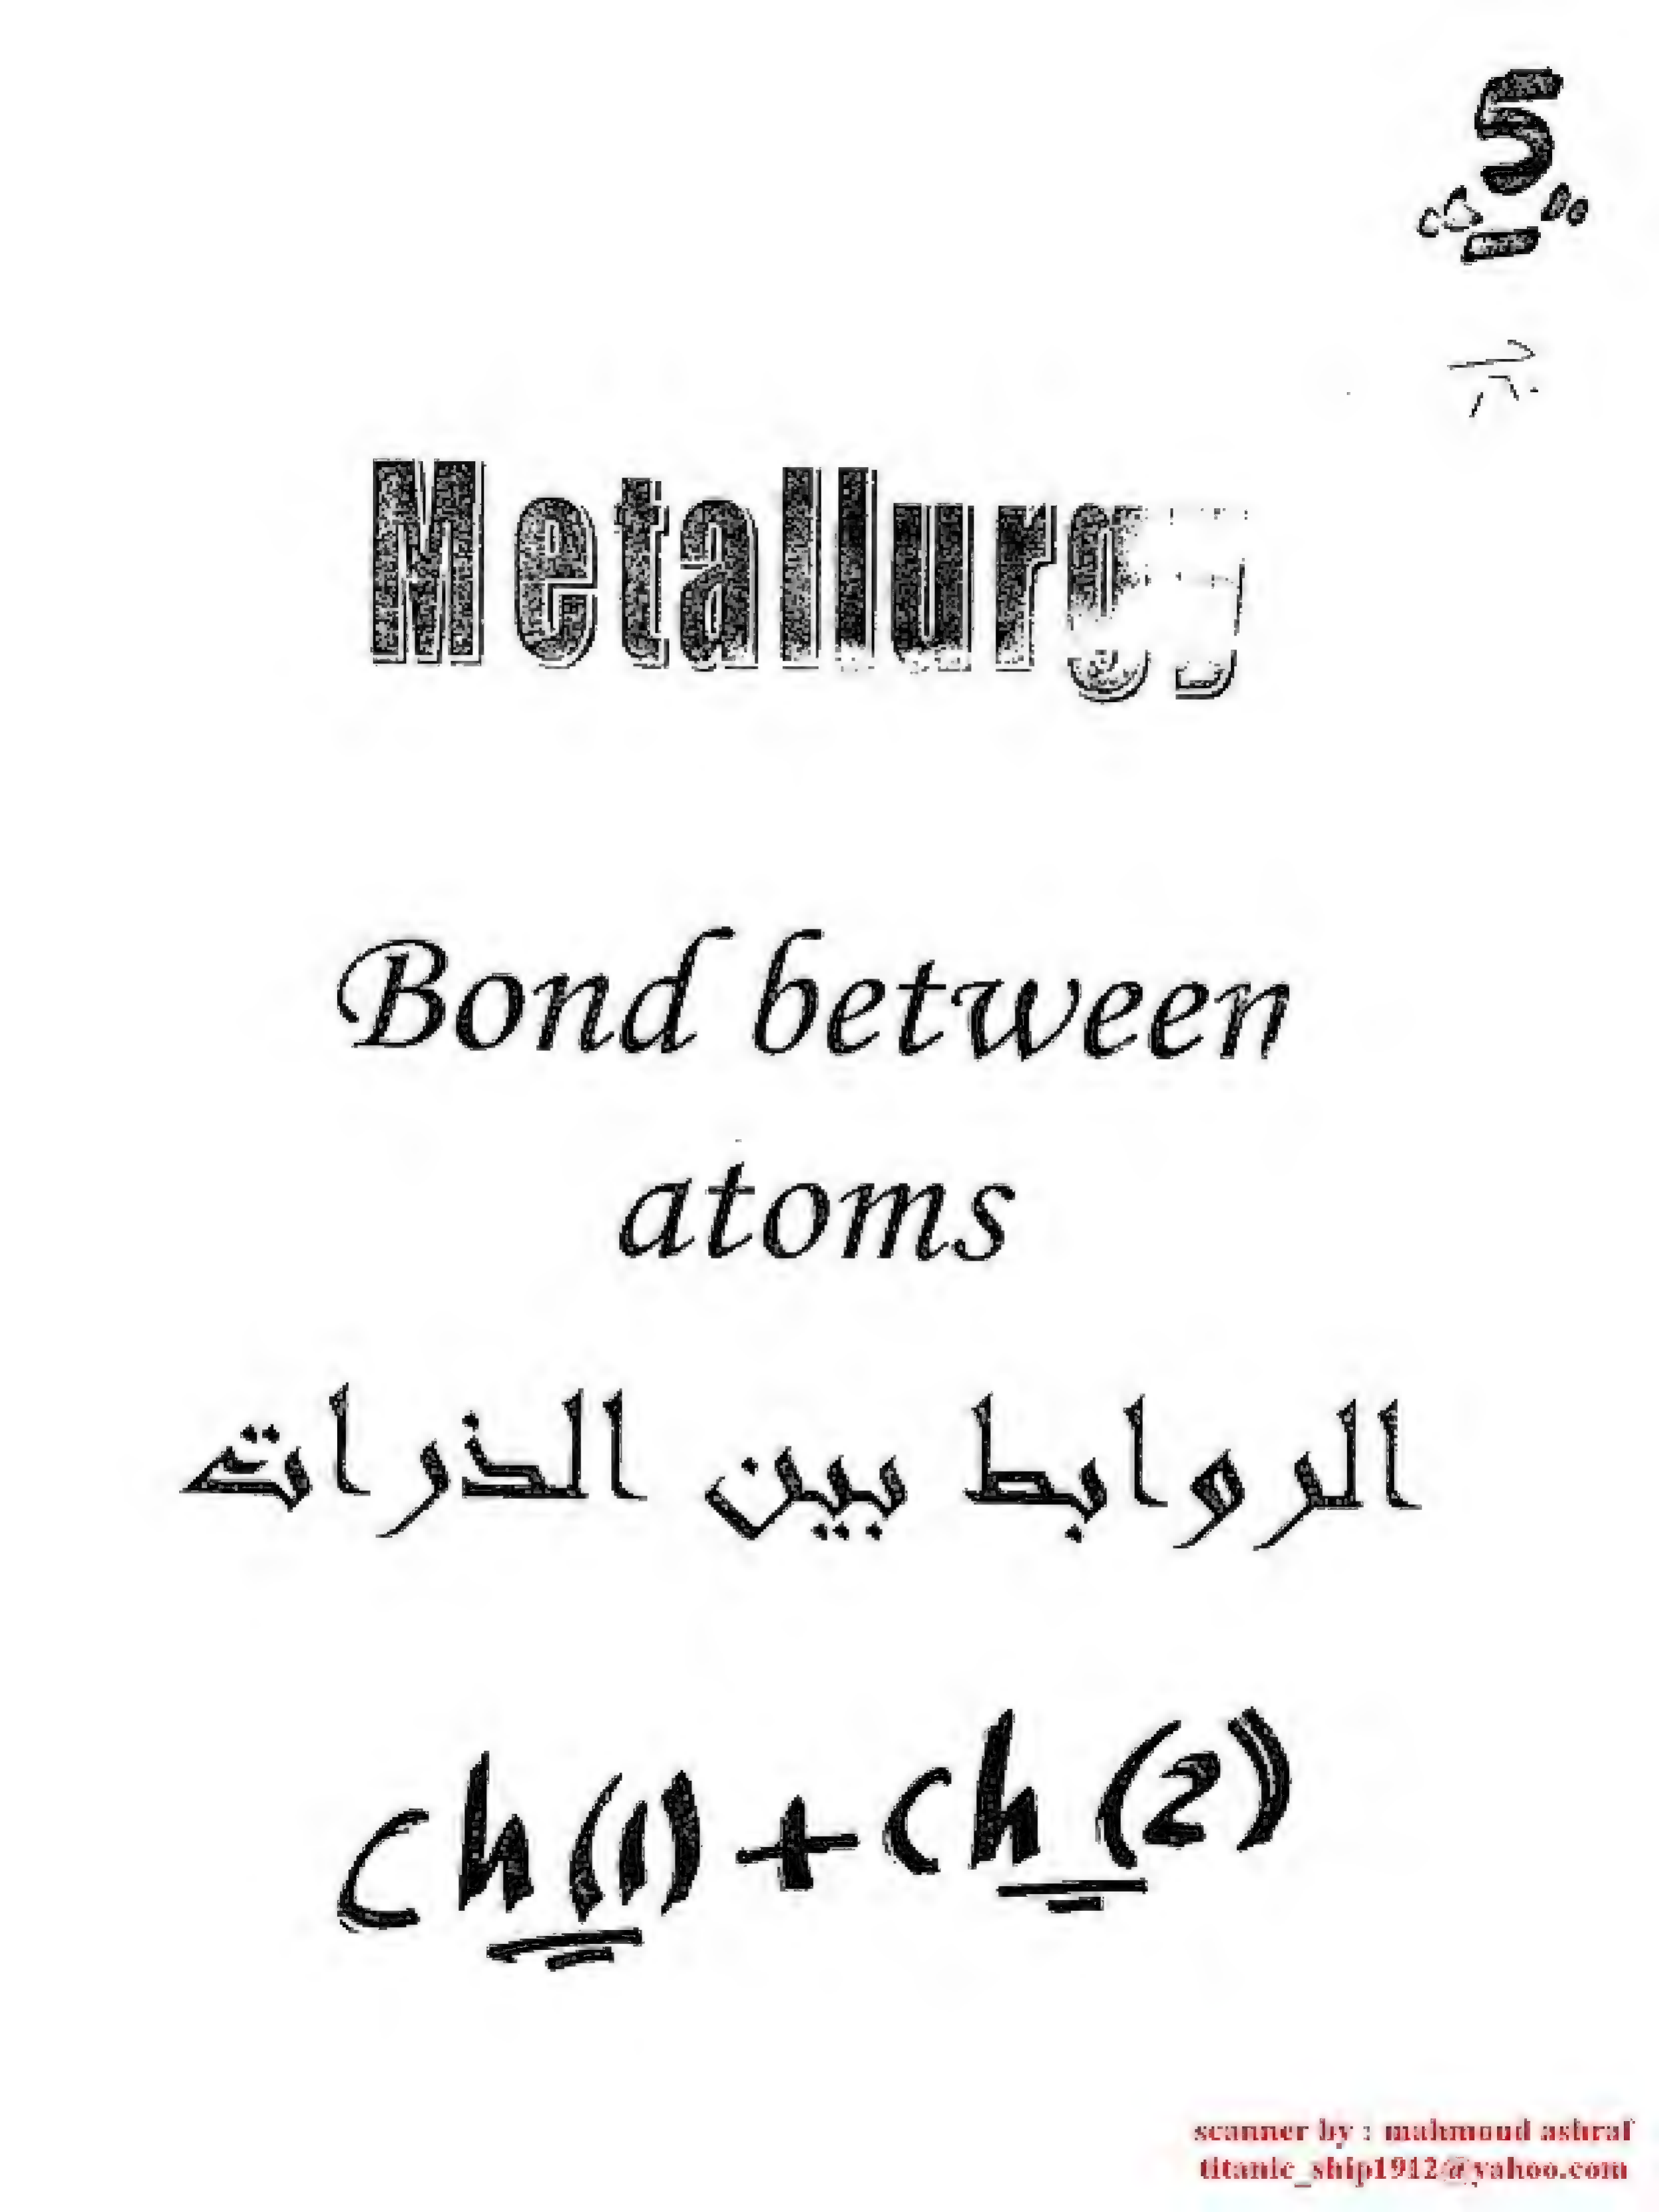 5
Metallurgy
Bond between
atoms
الروابط بين الذرات
Ch(1) + Ch(2)
scanner by : mahmoud ashraf
titanic_ship1912@yahoo.com